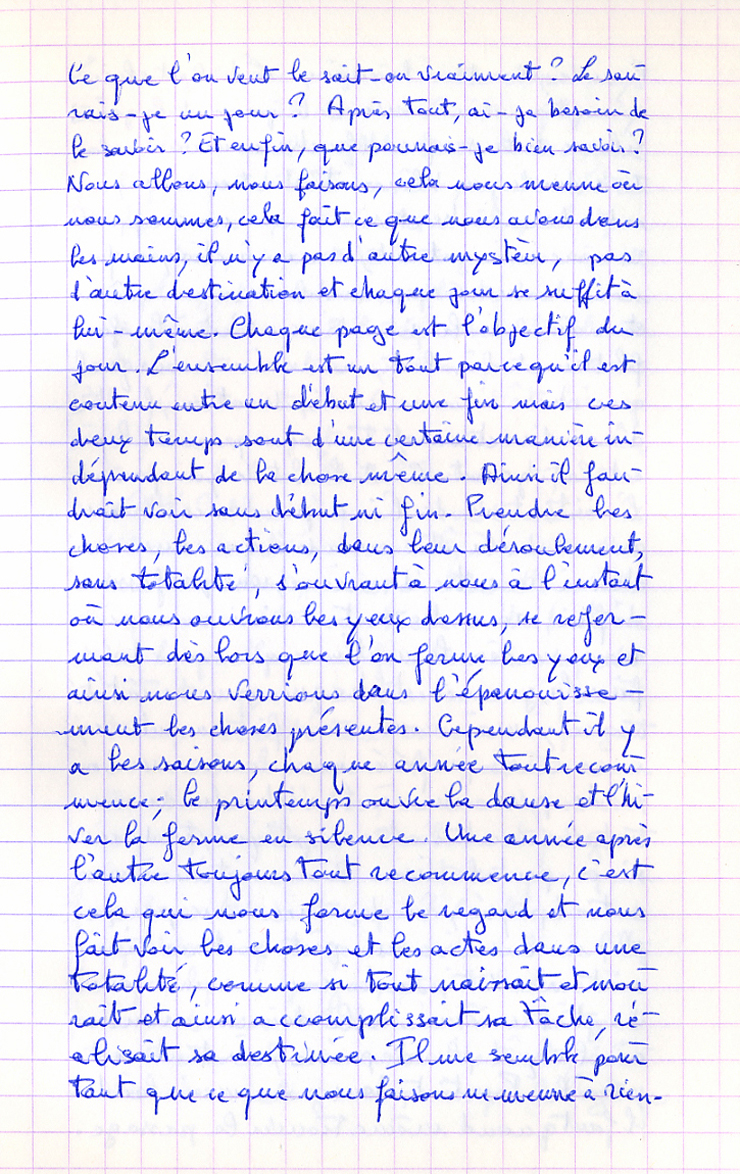 Ce que l'on veut le sait-on vraiment ? Le sau
rais-je un jour ? Après tout, ai-je besoin de
le savoir ? Et enfin, que pourrais-je bien savoir ?
Nous allons, nous faisons, cela nous menne où
nous sommes, cela fait ce que nous avons dans
les mains, il n'y a pas d'autre mystère, pas
d'autre destination et chaque jour se suffit à
lui-même. Chaque page est l'objectif du
jour. L'ensemble est un tout parcequ'il est
contenu entre un début et une fin mais ces
deux temps sont d'une certaine manière in-
dépendant de la chose même. Ainsi il fau-
drait voir sans début ni fin. Prendre les
choses, les actions, dans leur déroulement,
sans totalité, s'ouvrant à nous à l'instant
où nous ouvrons les yeux dessus, se refer-
mant dès lors que l'on ferme les yeux et
ainsi nous verrions dans l'épanouisse-
ment les choses présentes. Cependant il y
a les saisons, chaque année tout recom
mence ; le printemps ouvre la danse et l'hi-
ver la ferme en silence. Une année après
l'autre toujours tout recommence, c'est
cela qui nous forme le regard et nous
fait voir les choses et les actes dans une
totalité, comme si tout naissait et mou
rait et ainsi accomplissait sa tâche, ré-
alisait sa destinée. Il me semble pour
tant que ce que nous faisons ne menne à rien.